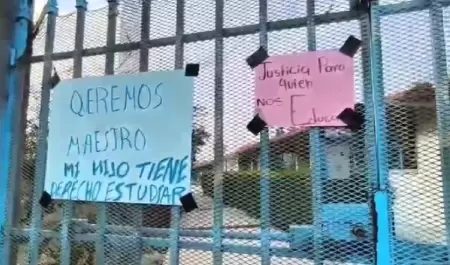 QEREMOS
MAESTRO
MI HIJO TIENE
DERECHO ESTUDIAR
Justicia Para
quien
NOS Educa